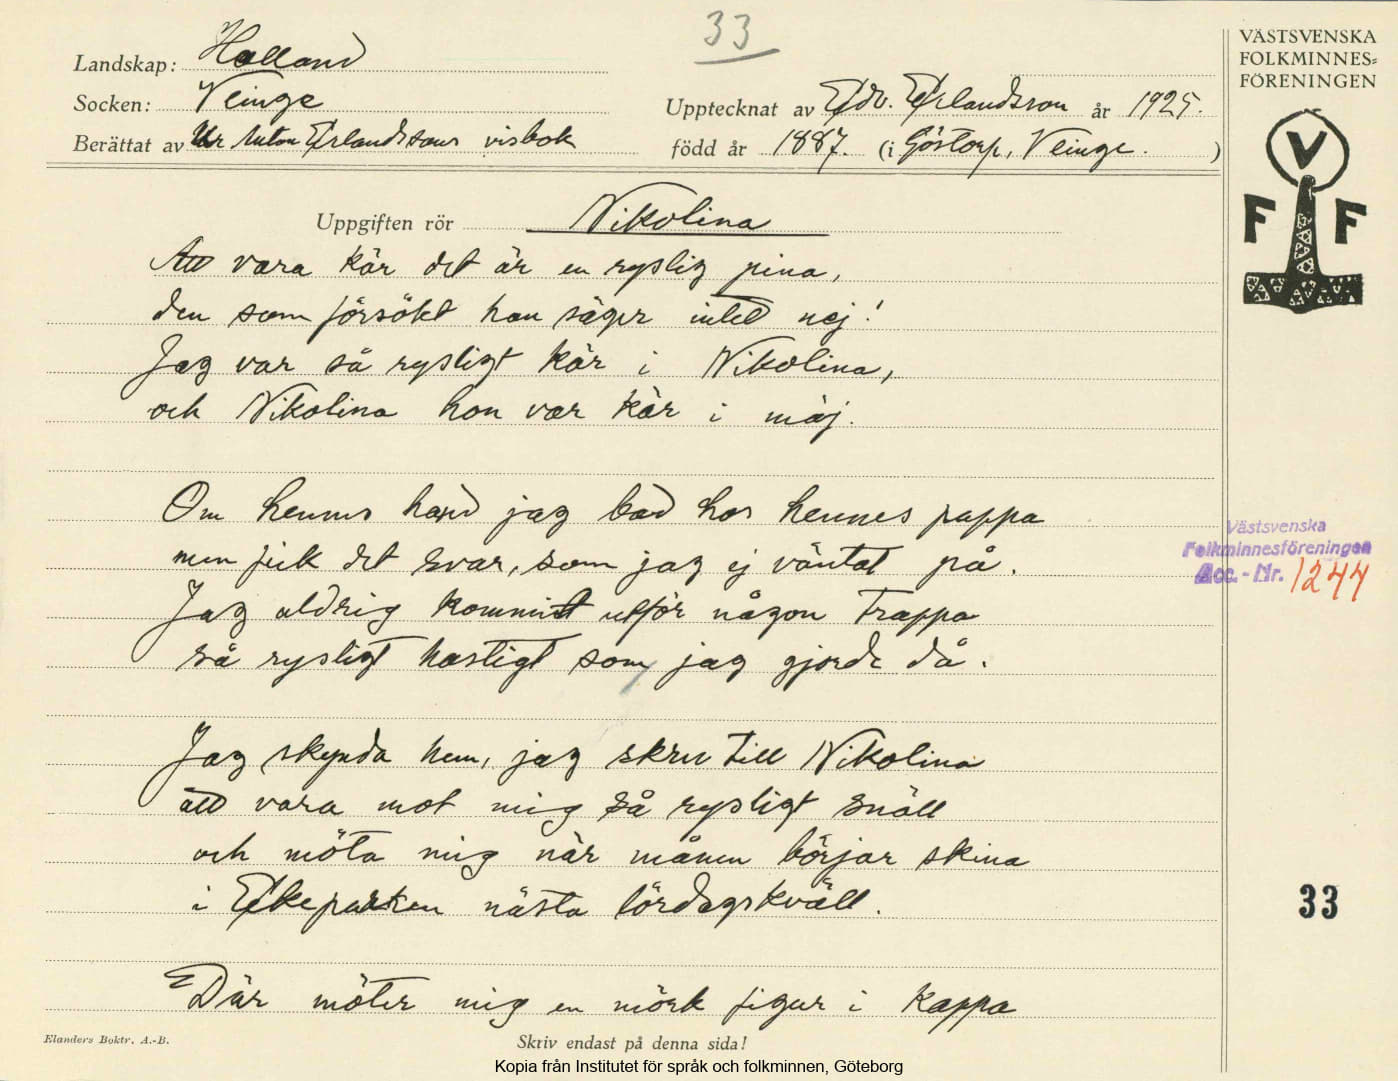 33
Landskap: Halland
Socken: Veinge
Berättat av Ur Anton Erlandssons visbok
Upptecknat av Edv. Erlandsson år 1925.
född år 1887. (i Göstorp, Veinge. )
VÄSTSVENSKA
FOLKMINNES=
FÖRENINGEN
V
F F
Uppgiften rör Nikolina
Att vara kär det är en ryslig pina,
den som försökt han säger intet nej!
Jag var så rysligt kär i Nikolina,
och Nikolina hon var kär i mäj.
Om hennes hand jag bad hos hennes pappa
men fick det svar, som jag ej väntat på.
Jag aldrig kommit utför någon trappa
så rysligt hastigt som jag gjorde då.
Västsvenska
Folkminnesföreningen
Acc.-Nr. 1244
Jag skynda hem, jag skrev till Nikolina
att vara mot mig så rysligt snäll
och möta mig när månen börjar skina
i Ekeparken nästa lördagskväll.
33
Där möter mig en mörk figur i kappa
Elanders Boktr. A.-B.
Skriv endast på denna sida!
Kopia från Institutet för språk och folkminnen, Göteborg